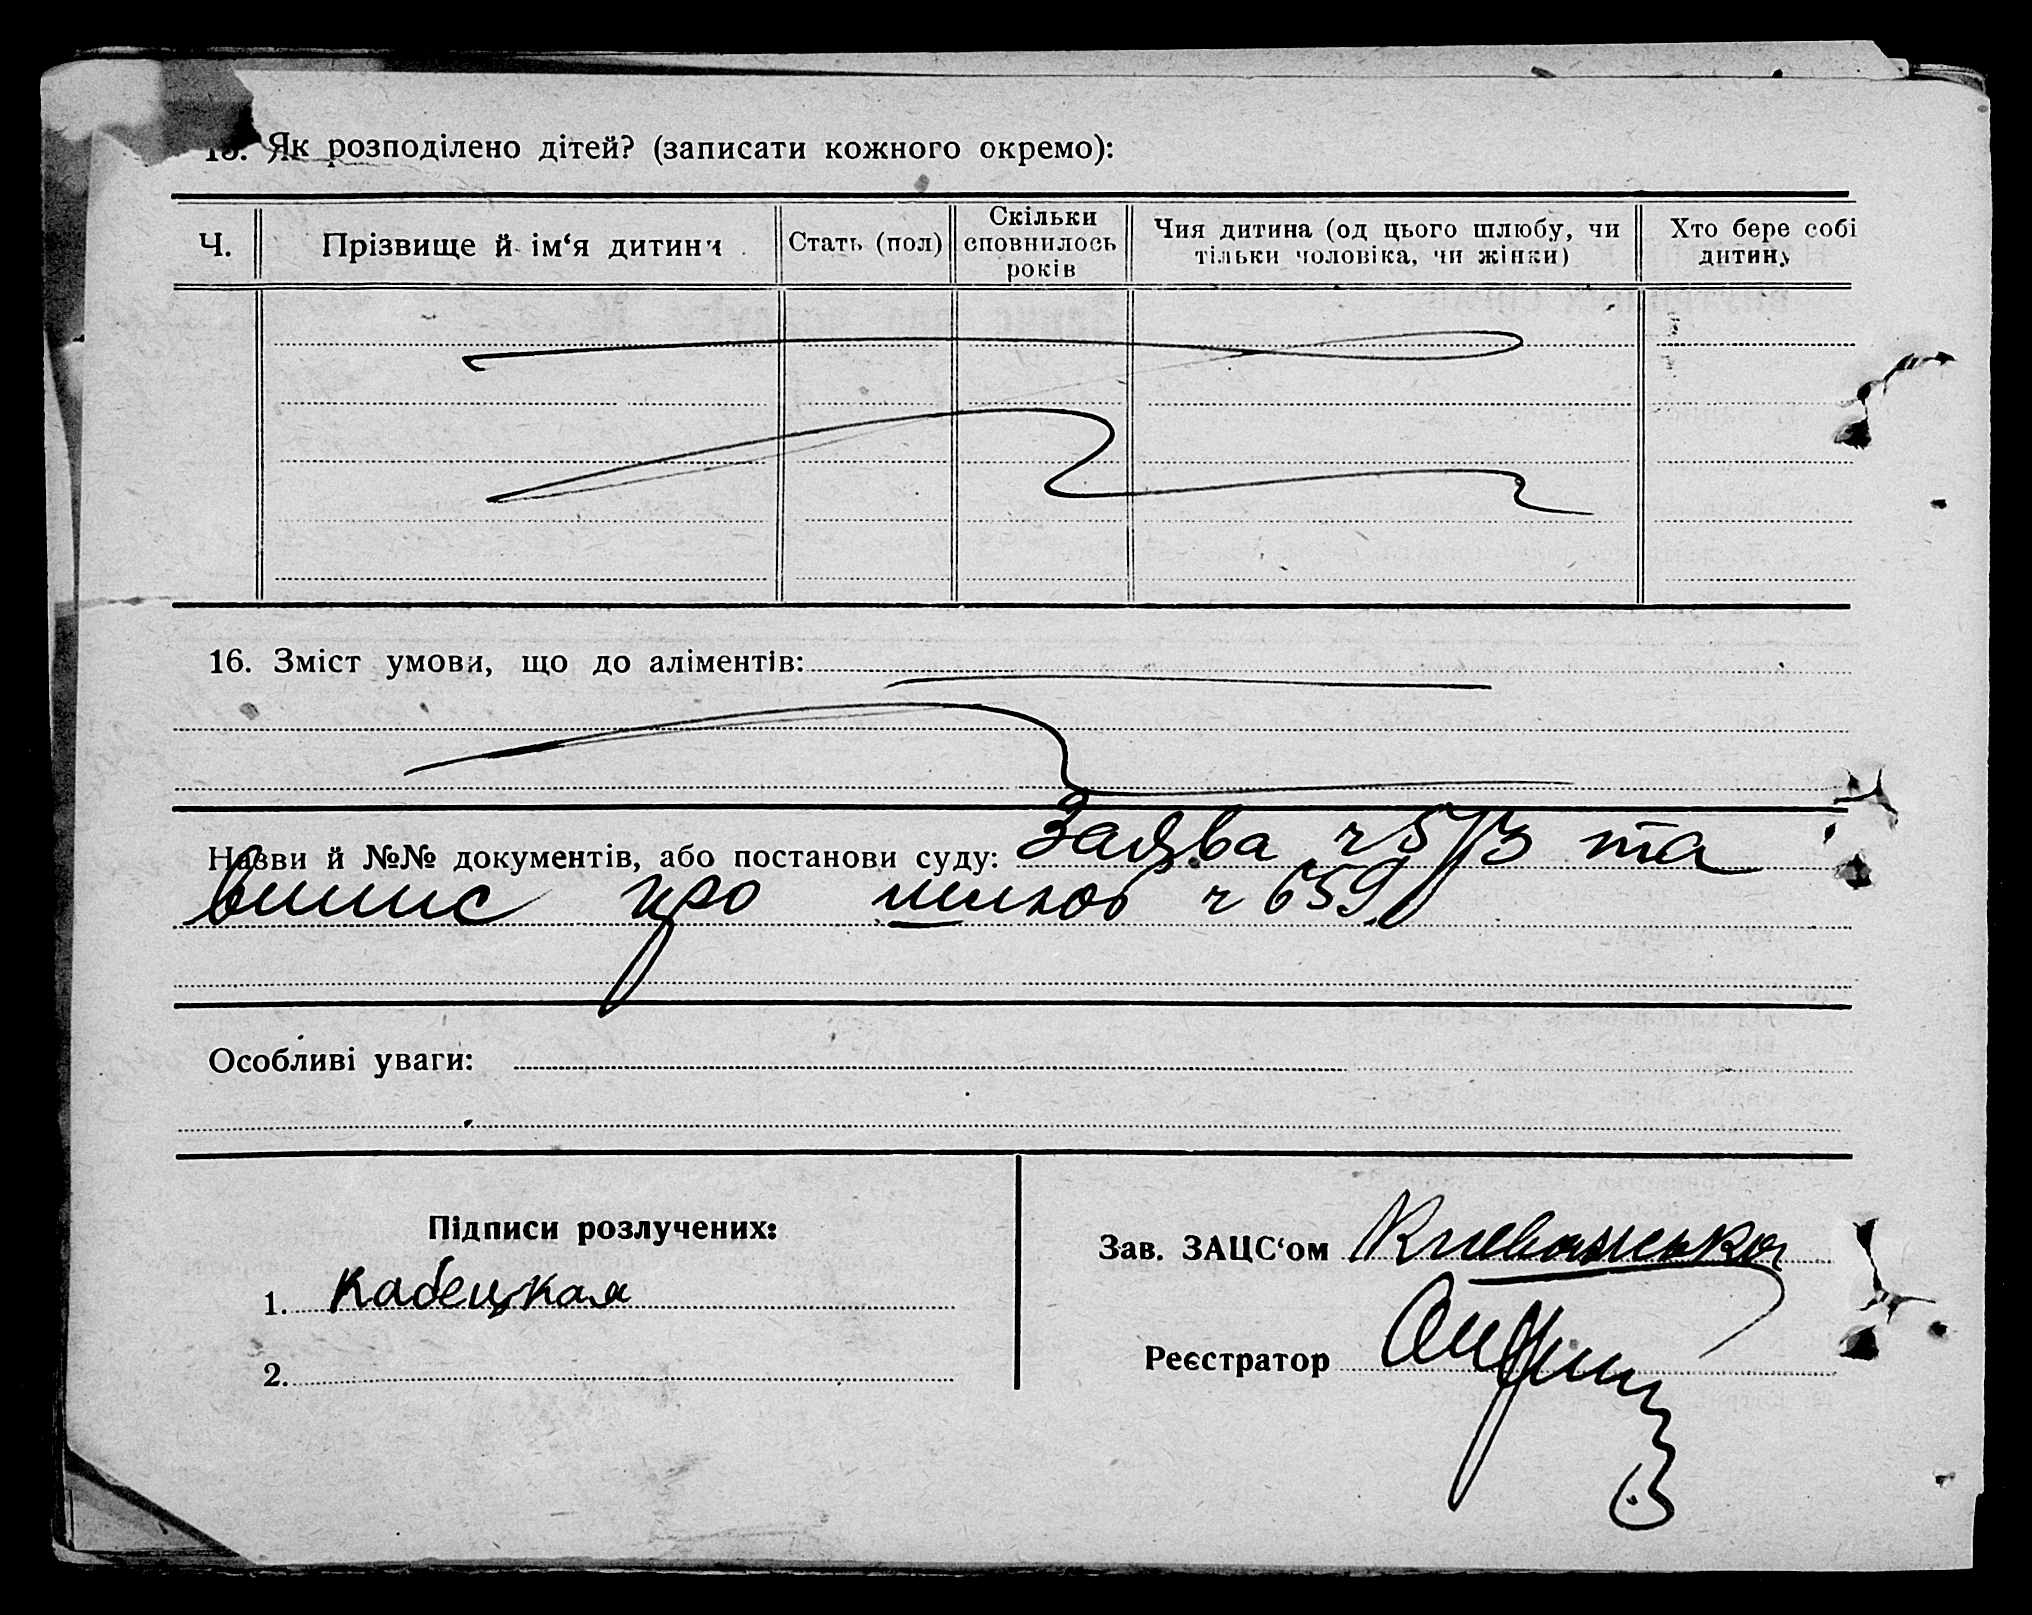 15. Як розподілено дітей? (записати кожного окремо):
Ч.
Прізвище й ім‘я дитини
Стать (пол)
Скільки
сповнилось
років
Чия дитина (од цього шлюбу, чи
тільки чоловіка, чи жінки)
Хто бере собі
дитину
16. Зміст умови, що до аліментів:
Назви й №№ документів, або постанови суду: Заява ч 573 та
Випис про шлюб ч 659
Особливі уваги:
Підписи розлучених:
1. Кабецкая
2.
Зав. ЗАЦС‘ом
Реєстратор